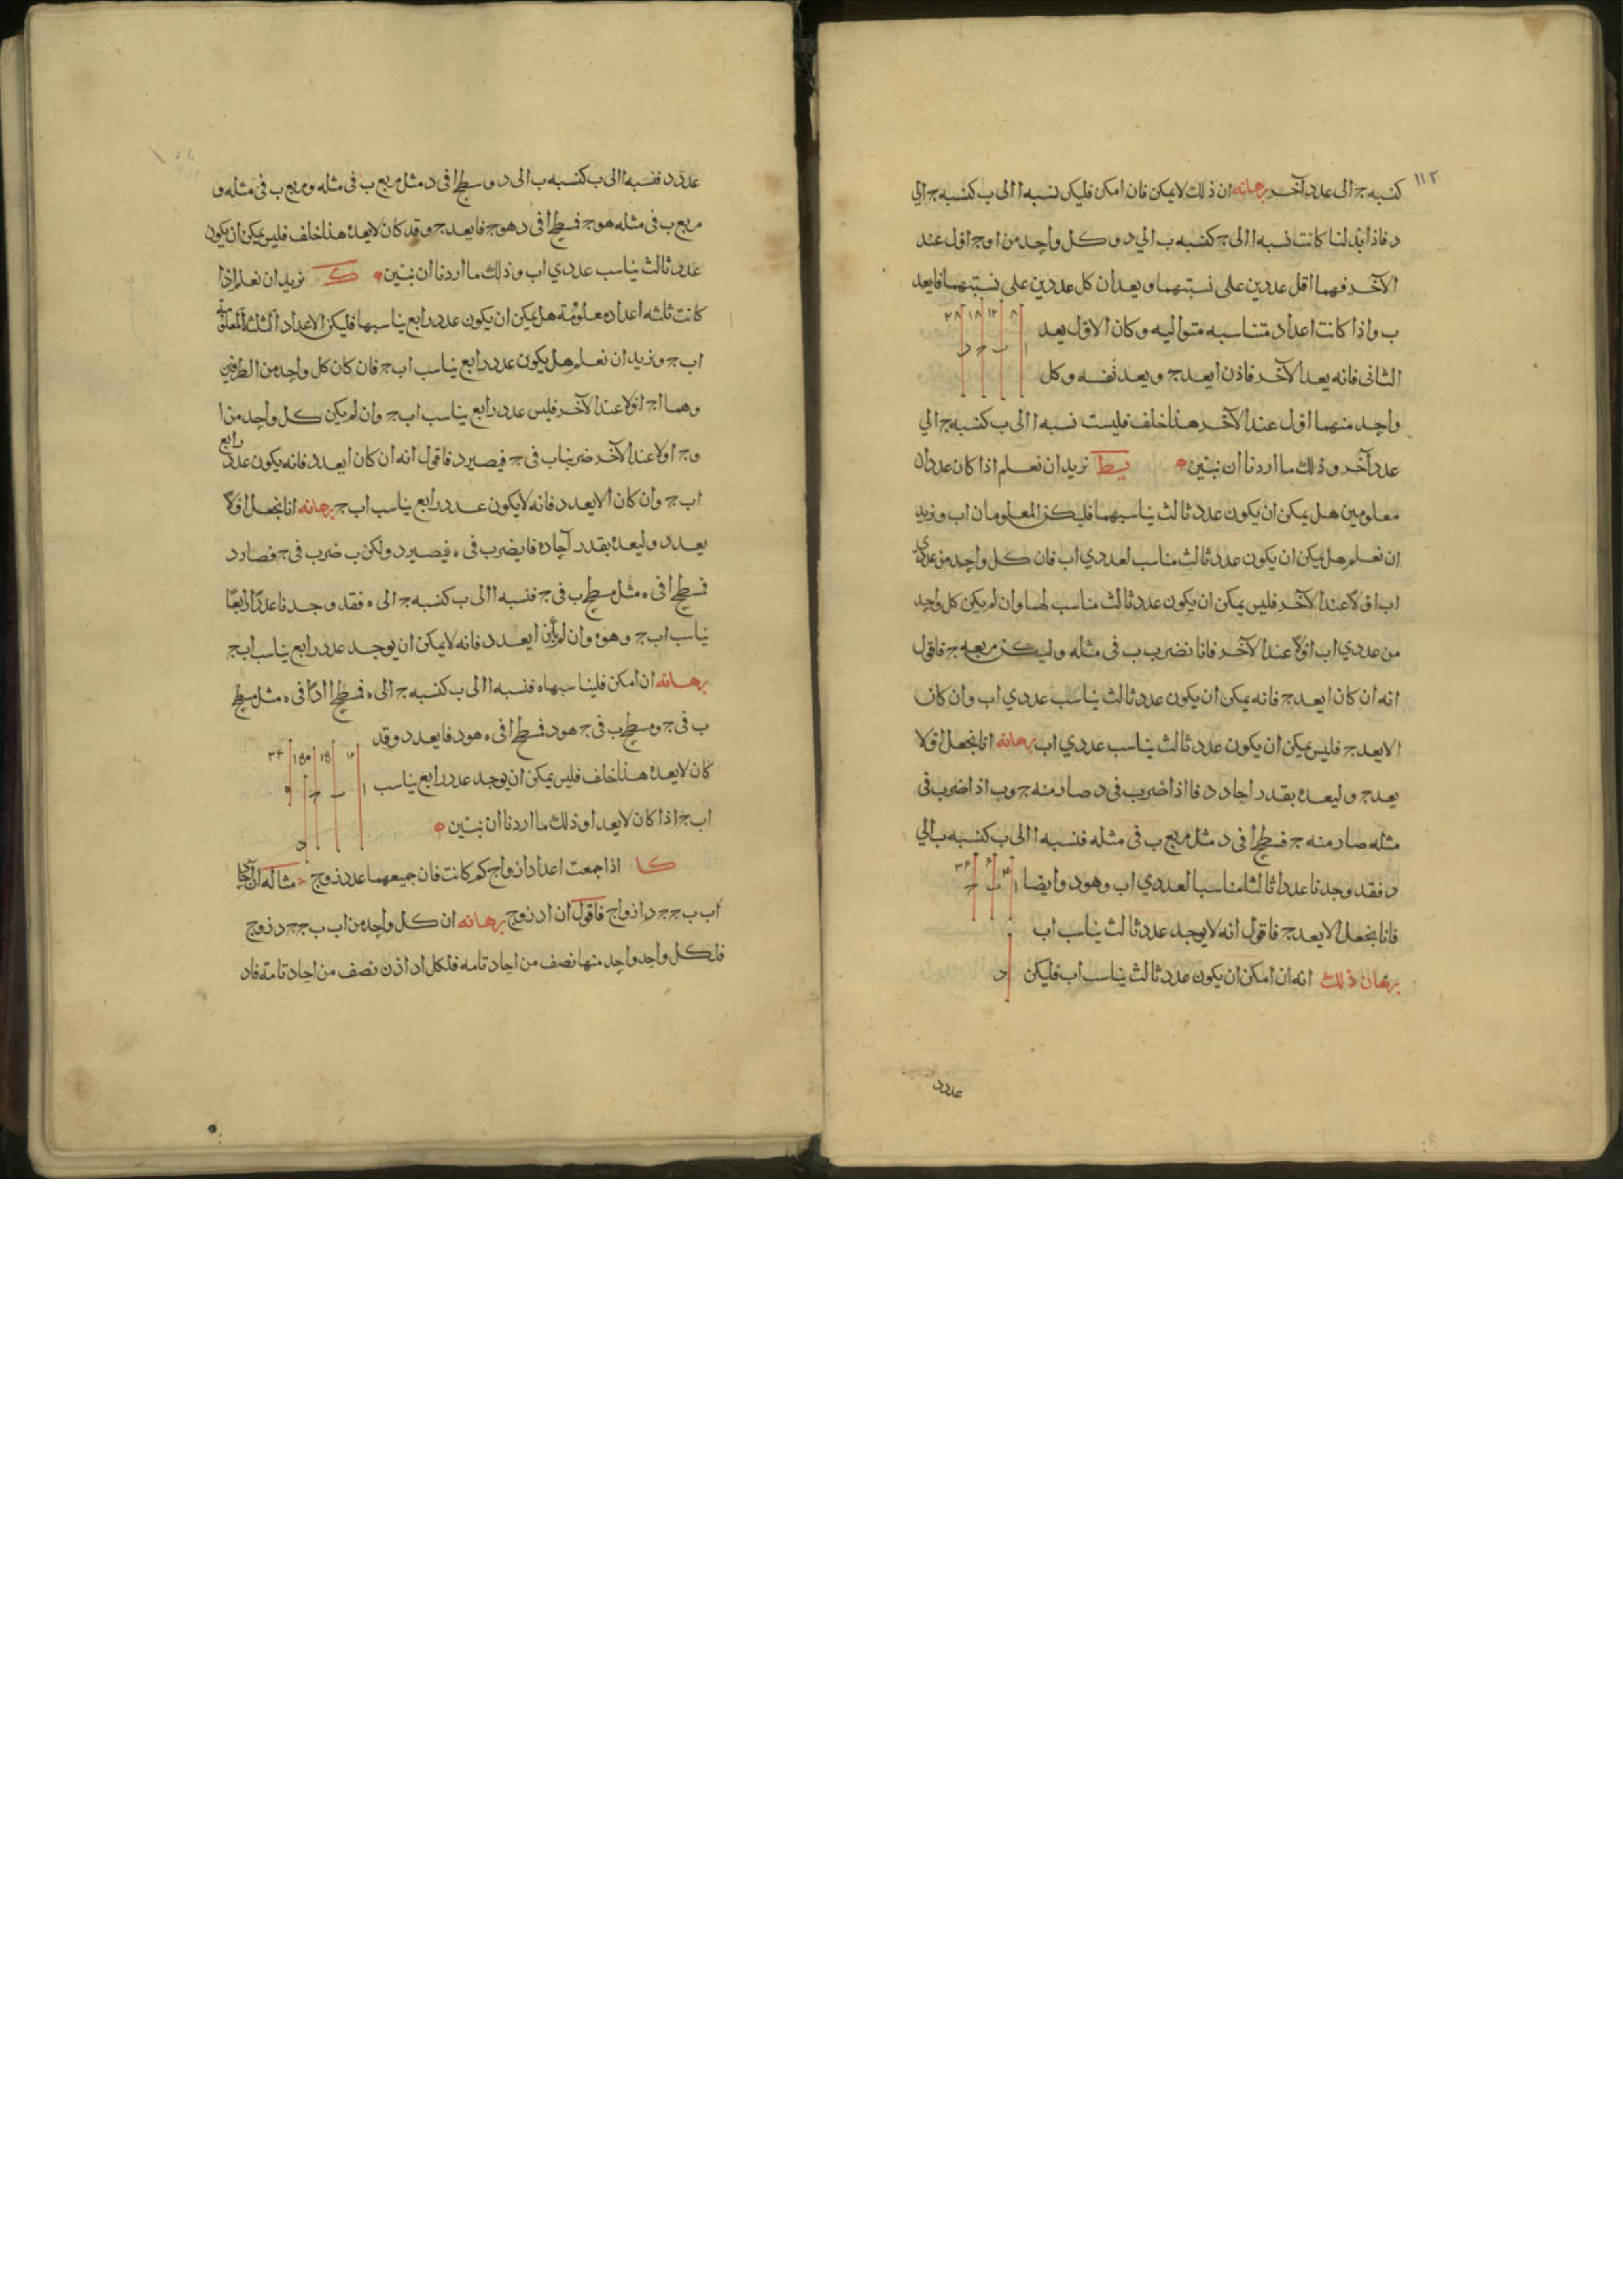 ١١٢
كنسبه ج الى عدد آخر برهانه ان ذلك لا يمكن فان امكن فليكن نسبه ا الى ب كنسبه ج الي
د فاذا ابدلنا كانت نسبه ا الى ج كنسبه ب الي د و كل واحد من ا و ج اول عند
الآخر فهما اقل عددين على نسبتهما ويعدان كل عددين على نسبتهما فا يعد
ب واذا كانت اعداد متناسبه متواليه وكان الاول يعد
الثانى فانه يعد الآخر فاذن ا يعد ج ويعد نفسه وكل
واحد منهما اول عند الآخر هذا خلف فليست نسبه ا الى ب كنسبه ج الي
عدد آخر وذلك ما اردنا ان نبين يط نريد ان نعلم اذا كان عددان
معلومين هل يمكن ان يكون عدد ثالث يناسبهما فليكن المعلومان اب ونريد
ان نعلم هل يمكن ان يكون عدد ثالث مناسب لعددي اب فان كل واحد من عددى
اب اولا عند الآخر فليس يمكن ان يكون عدد ثالث مناسب لهما وان لم يكن كل واحد
من عددي اب اولا عند الآخر فانا نضرب ب فى مثله وليكن مربعه ج فاقول
انه ان كان ا يعد ج فانه يمكن ان يكون عدد ثالث يناسب عددي اب وان كان
ا لا يعد ج فليس يمكن ان يكون عدد ثالث يناسب عددي اب برهانه انا نجعل اولا
يعد ج وليعده بقدر احاد د فا اذا ضرب فى د صار منه ج وب اذا ضرب فى
مثله صار منه ج فسطح ا فى د مثل مربع ب فى مثله فنسبه ا الى ب كنسبه ب الي
د فقد وجدنا عددا ثالثا مناسبا لعددي اب وهو د وايضا
فانا نجعل ا لا يعد ج فاقول انه لا يوجد عدد ثالث يناسب اب
برهان ذلك انه ان امكن ان يكون عدد ثالث يناسب اب فليكن
٨ ١٢ ١٨
ا ب ج د
ا ب ج
د
عدد د
عدد د فنسبه ا الى ب كنسبه ب الى د و سطح ا فى د مثل مربع ب فى مثله ومربع ب فى مثله و
مربع ب فى مثله هو ج فسطح ا فى د هو ج فا يعد ج وقد كان لا يعده هذا خلف فليس يمكن ان يكون
عدد ثالث يناسب عددي اب وذلك ما اردنا ان نبين ك نريد ان نعلم اذا
كانت ثلثه اعداد معلومة هل يمكن ان يكون عدد رابع يناسبها فليكن الاعداد الثلثه المعلومة
اب ج ونريد ان نعلم هل يكون عدد رابع يناسب اب ج فان كان كل واحد من الطرفين
وهما ا ج اولا عند الآخر فليس عدد رابع يناسب اب ج وان لم يكن كل واحد من ا
و ج اولا عند الآخر ضربنا ب فى ج فيصير د فاقول انه ان كان ا يعد د فانه يكون عدد رابع
اب ج وان كان ا لا يعد د فانه لا يكون عدد رابع يناسب اب ج برهانه انا نجعل اولا
يعد د وليعده بقدر آحاد ه فا يضرب فى ه فيصير د ولكن ب ضرب فى ج فصار د
فسطح ا فى ه مثل سطح ب فى ج فنسبه ا الى ب كنسبه ج الى ه فقد وجدنا عددًا رابعًا
يناسب اب ج وهو ه وان لم يكن ا يعد د فانه لا يمكن ان يوجد عدد رابع يناسب اب ج
برهانه ان امكن فليناسبها ه فنسبه ا الى ب كنسبه ج الى ه فسطح ا فى ه مثل سطح
ب فى ج وسطح ب فى ج هو د فسطح ا فى ه هو د فا يعد د وقد
كان لا يعده هذا خلف فليس يمكن ان يوجد عدد رابع يناسب
اب ج اذا كان لا يعد ا وذلك ما اردنا ان نبين
كا اذا جمعت اعداد ازواج كم كانت فان جميعهما عدد زوج مثاله ان
اب ب ج ج د ازواج فاقول ان ا د زوج برهانه ان كل واحد من اب ب ج ج د زوج
فلكل واحد واحد منها نصف من احاد تامه فلكل اد اذن نصف من احاد تامة فاد
ا ب ج ه
د